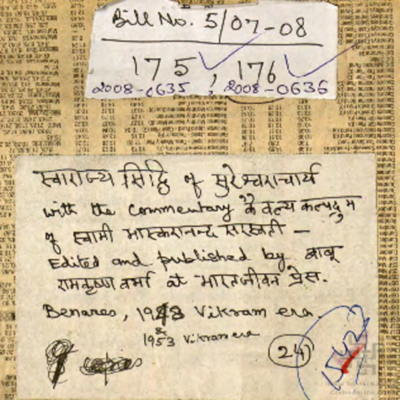 Bill No. 5/07-08
175, 176
2008-0635, 2008-0636
स्वाराज्य सिद्धि of सुरेश्वराचार्य
with the commentary कैवल्य कल्पद्रुम
of स्वामी भास्करानन्द सरस्वती —
Edited and published by बाबू
रामकृष्ण वर्मा at भारतजीवन प्रेस.
Benares, 1948 Vikram era.
& 1953 Vikram era
24